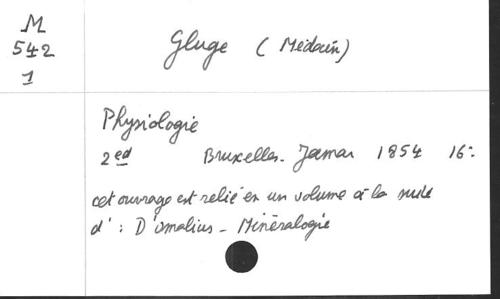 M
542
1
Gluge (Médecin)
Physiologie
2ed Bruxelles - Jamar 1854 16:
cet ouvrage est relié en un volume à la suite
d': D'omalius - Minéralogie